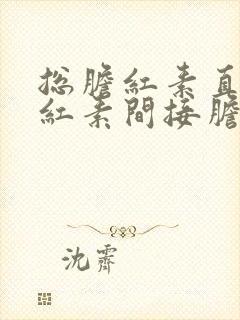 総膽紅素直
紅素間接膽
沈霽